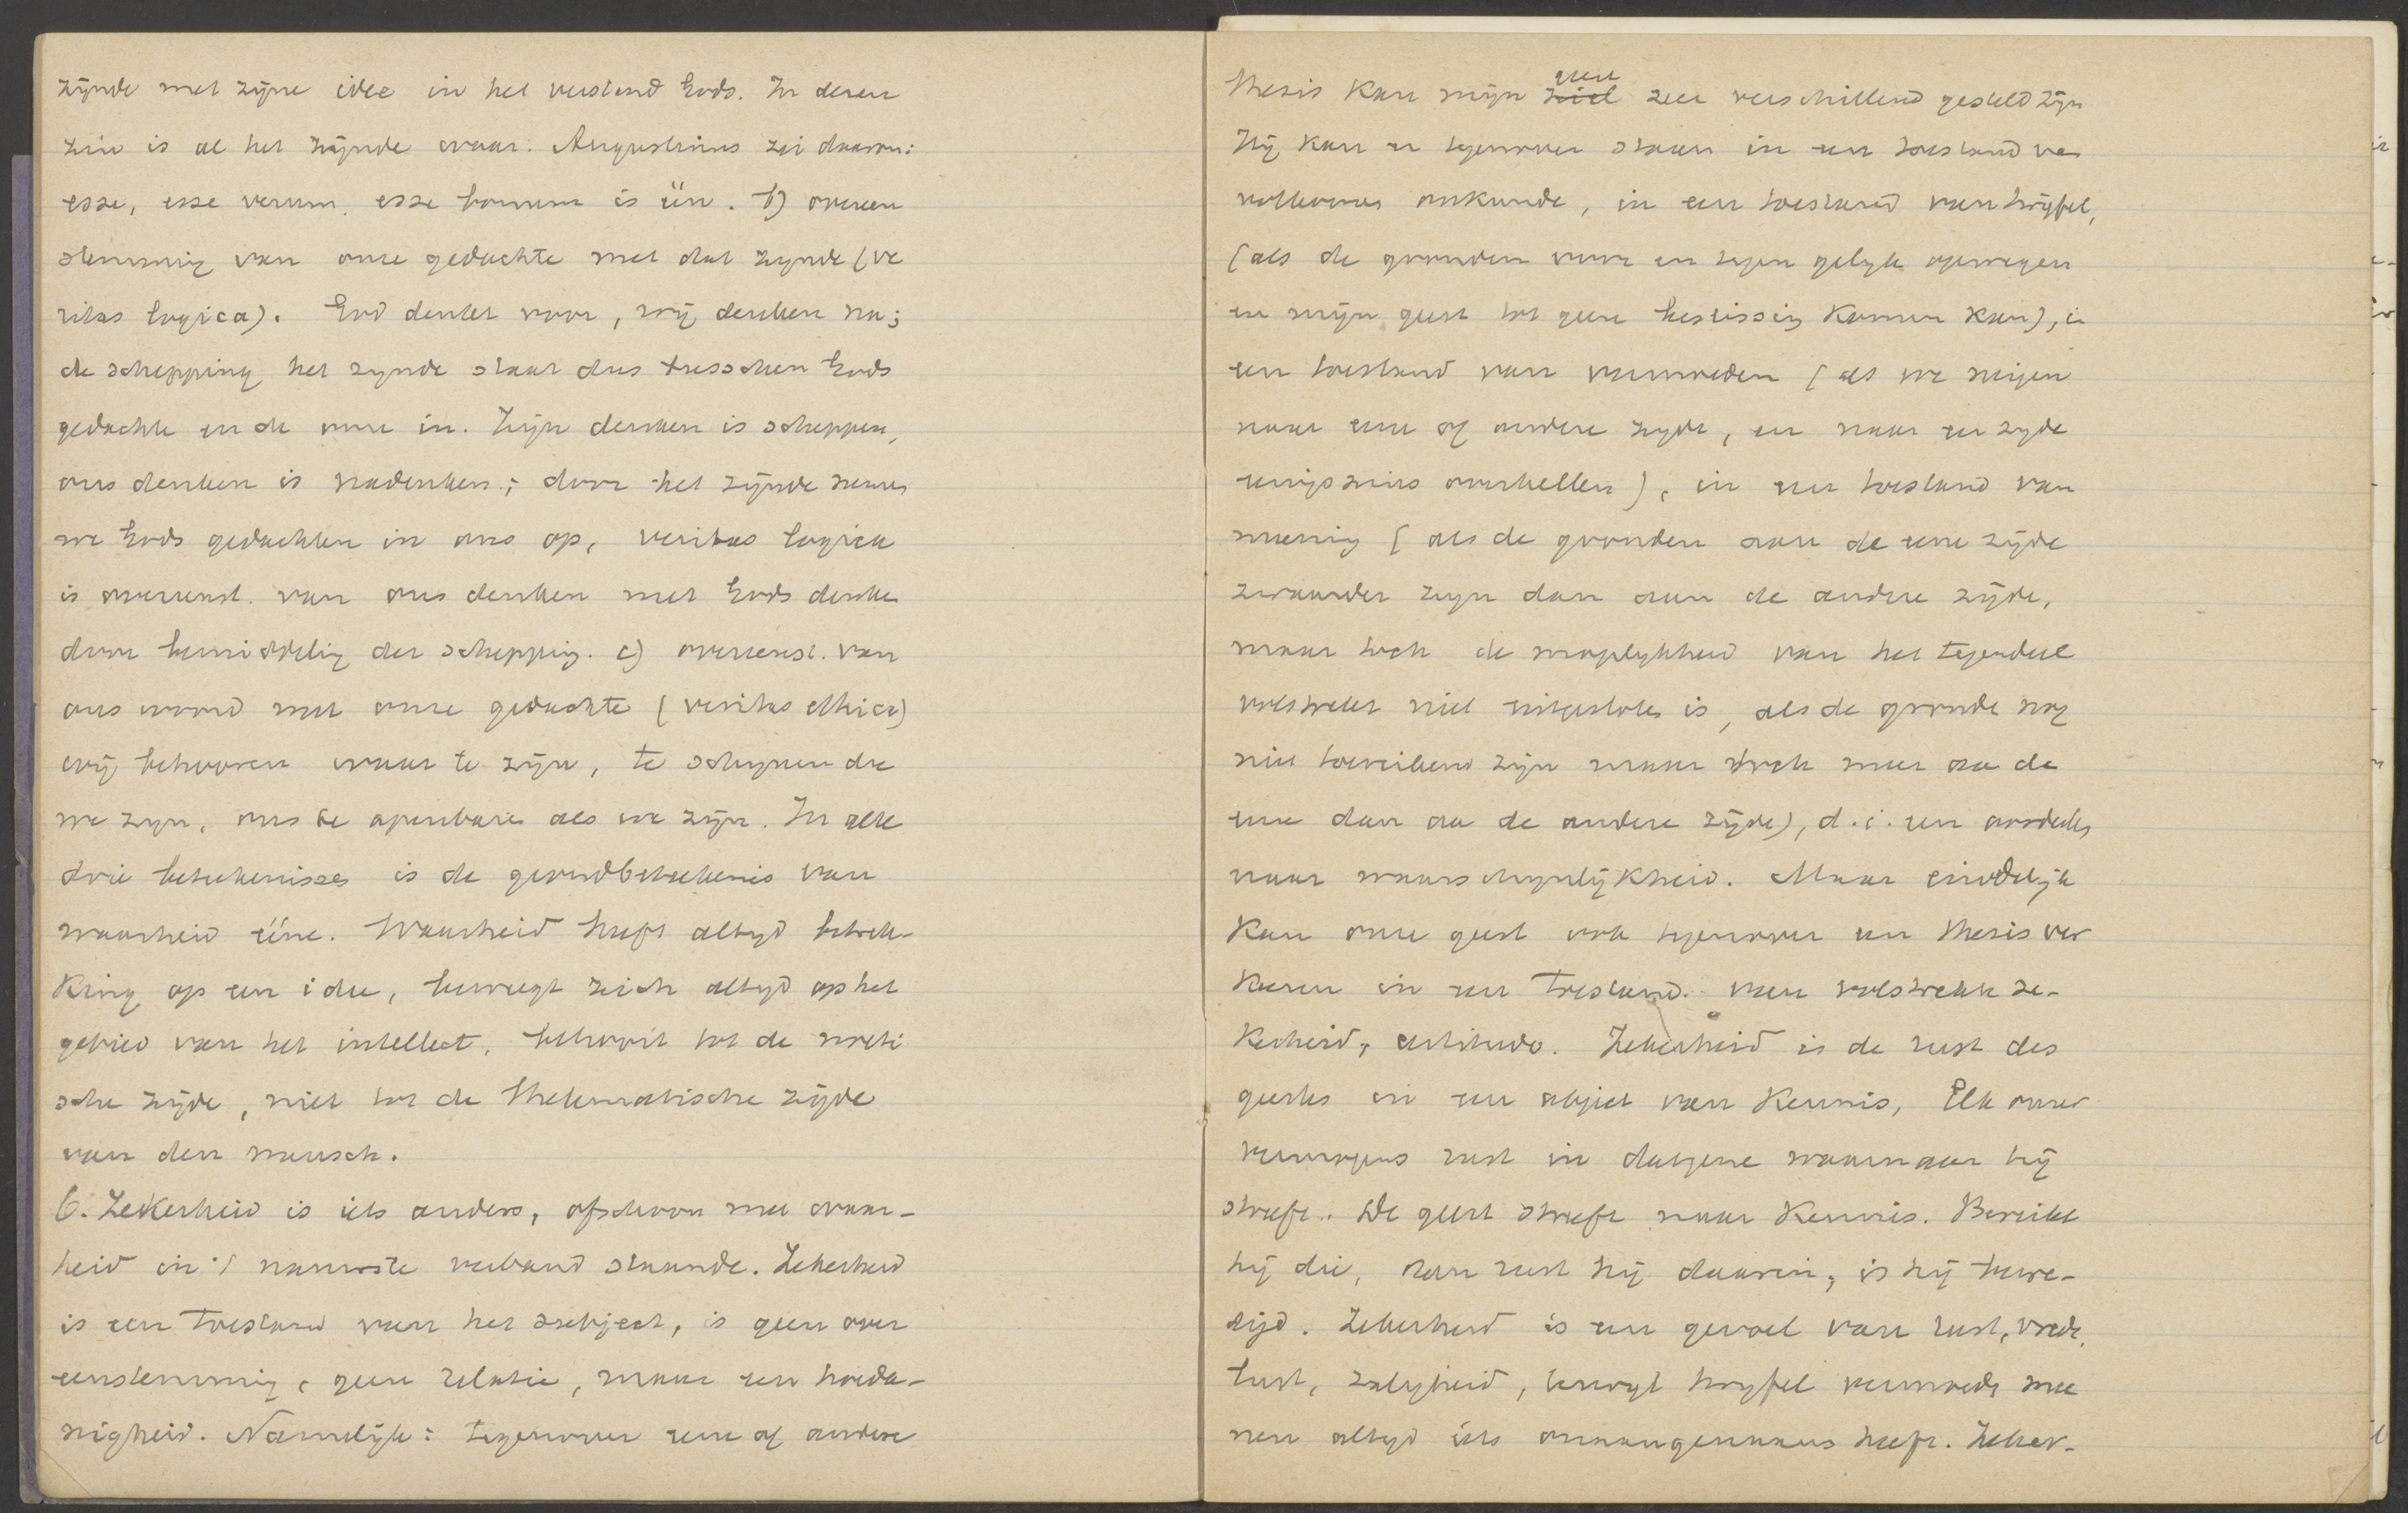 zijnde met zijne idee in het verstand Gods. In dezen
zin is al het zijnde waar. Augustinus zei daarom:
esse, esse verum, esse bonum is één. b) overeen
stemming van onze gedachte met dat zijnde (ve
ritas logica). God denkt voor, wij denken na;
de schepping het zijnde staat dus tusschen Gods
gedachte en de onze in. Zijn denken is scheppen,
ons denken is nadenken; door het zijnde nemen
we Gods gedachten in ons op, veritas logica
is overeenst. van ons denken met Gods denken
door bemiddeling der schepping. c) overeenst. van
ons woord met onze gedachte (veritas ethica)
wij behooren waar te zijn, te schijnen die
we zijn, ons te openbaren als we zijn. In alle
drie beteekenisses is de grondbeteekenis van
waarheid ééne. Waarheid heeft altijd betrek-
king op een idee, beweegt zich altijd op het
gebied van het intellect, behoort tot de noëti
sche zijde, niet tot de thelematische zijde
van den mensch.
6. Zekerheid is iets anders, ofschoon met waar-
heid in 't nauwste verband staande. Zekerheid
is een toestand van het subject, is geen over
eenstemming, geen relatie, maar een hoeda-
nigheid. Namelijk: tegenover eene of andere
thesis kan mijn ziel geest zeer verschillend gesteld zijn
Hij kan er tegenover staan in een toestand van
volkomen onkunde, in een toestand van twijfel,
(als de gronden voor en tegen gelijk opwegen
en mijn geest tot geen beslissing komen kan), in
een toestand van vermoeden (als we neigen
naar eene of andere zijde, en naar een zijde
eenigszins overhellen), in een toestand van
meening (als de gronden aan de eene zijde
zwaarder zijn dan aan de andere zijde,
maar toch de mogelijkheid van het tegendeel
volstrekt niet uitgesloten is, als de gronde nog
niet toereikend zijn maar toch meer aa de
eene dan aa de andere zijde), d.i. een oordeelen
naar waarschijnlijkheid. Maar eindelijk
kan onze geest ook tegenover een thesis ver
keeren in een toestand van volstrekte ze-
kerheid, certitudo. Zekerheid is de rust des
geestes in een object van kennis, Elk onzer
vermogens rust in datgene waarnaar hij
streeft. De geest streeft naar kennis. Bereikt
hij die, dan rust hij daarin, is hij bevre-
digd. Zekerheid is een gevoel van rust, vrede,
lust, zaligheid, terwijl twijfel vermoede mee
nen altijd iets onaangenaams heeft. Zeker-